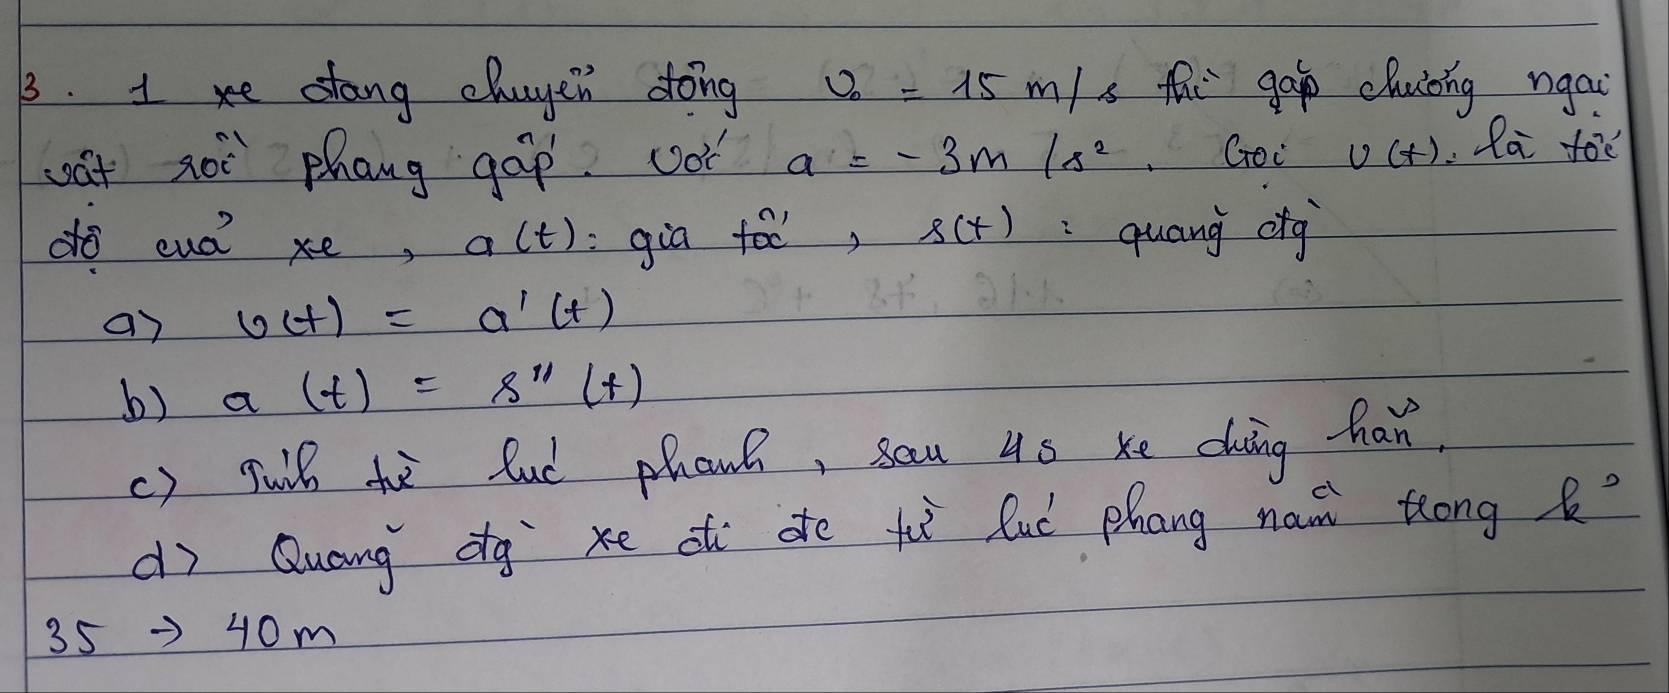 3. 1 xe đang chuyển động v₀ = 15 m/s thì gặp chướng ngại
vật rồi phang gấp. Với a = -3m/s². Gọi v(t). là tốc
độ cuả xe, a(t): gia tốc, s(t): quang̃ đg̀
a> v(t) = a'(t)
b) a (t) = s"(t)
c> Tính từ lúc phanh, sau 4s xe dừng hẳn.
d> Quang̃ đg̀ xe đi đc từ lúc phang nằm trong k²
35 → 40m